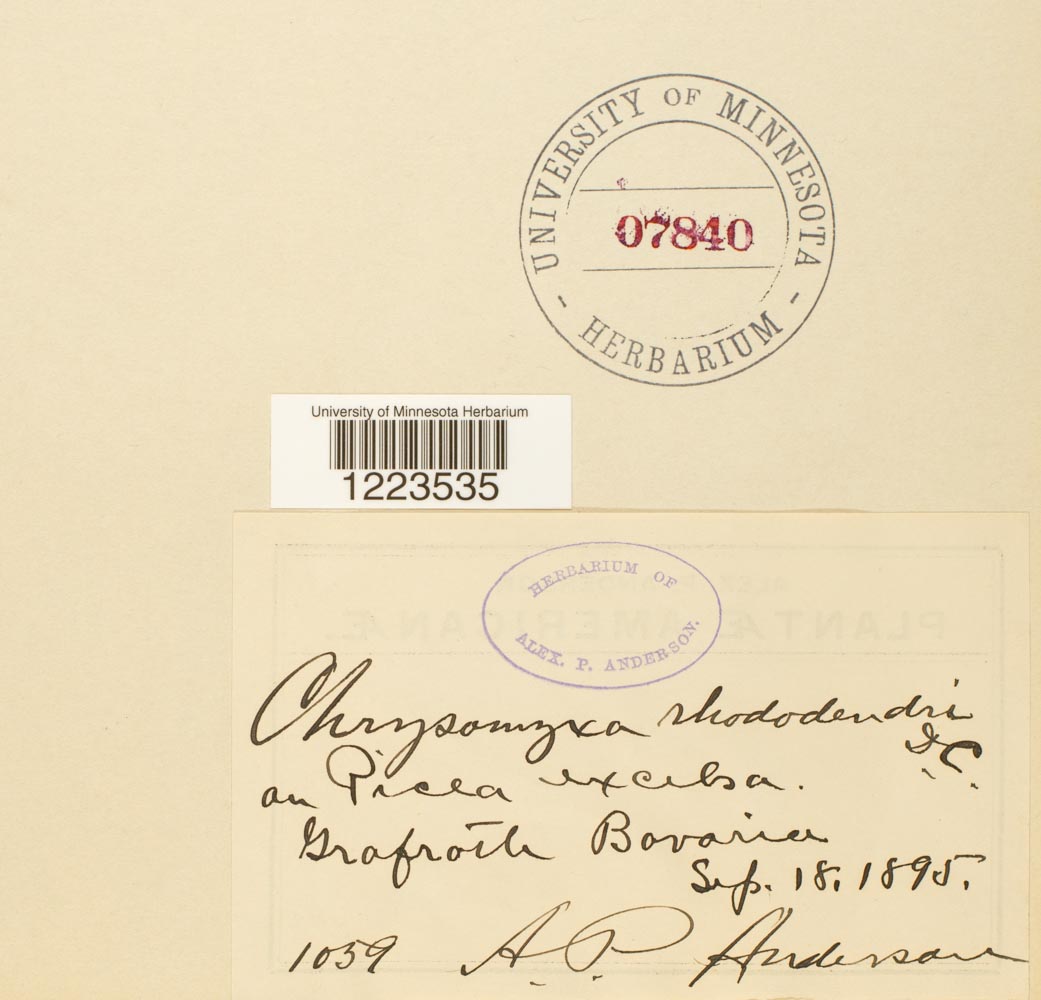 UNIVERSITY OF MINNESOTA
07840
- HERBARIUM -
University of Minnesota Herbarium
1223535
HERBARIUM OF
ALEX. P. ANDERSON.
PLANTÆ AMERICANÆ.
Chrysomyxa rhododendri
D.C.
on Picea excelsa.
Grafrath Bavaria
Sep. 18. 1895.
1059 A. P. Anderson